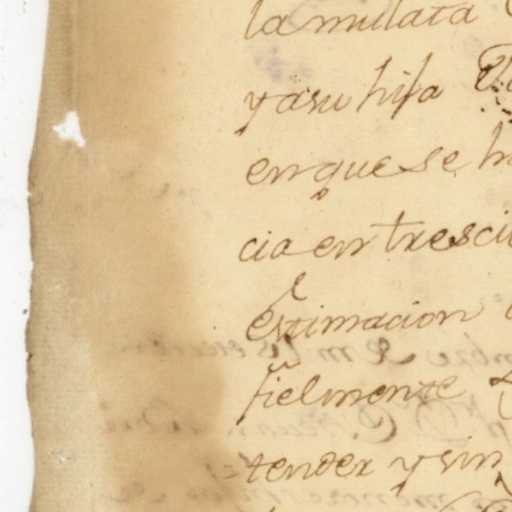 la mulata
y a su hija
en que se h
cia en tresci
estimacion
fielmente
=tender y sin